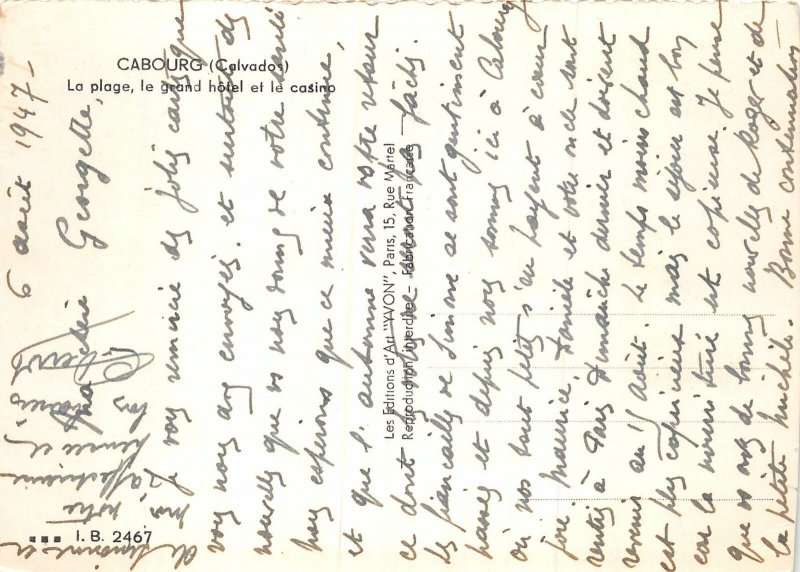 CABOURG (Calvados)
La plage, le grand hôtel et le casino
6 août 1947-
Ma chère Georgette,
Je vous remercie des jolies cartes que
vous nous avez envoyées et surtout des
nouvelles que vous nous donnez de votre santé
nous espérons que ce mieux continue,
et que l'automne verra votre retour
ce dont nous ne serons pas fâchés.
les fiançailles de Simone se sont gentiment
passées et depuis nous sommes ici à Cabourg
où nos tout petits s'en payent à cœur
joie. Maurice, Danièle et votre nièce sont
rentrés à Paris Dimanche dernier et doivent
revenir au 15 Août. Le temps moins chaud
est plus capricieux mais le séjour est bon
car la nourriture est copieuse. Je pense
que vous avez de bonnes nouvelles de Roger et de
la petite Michèle. Bonne continuation
de
mieux
votre
affectionnée
Les Editions d'Art "YVON", Paris, 15, Rue Martel
Reproduction Interdite - Fabrication Française
I. B. 2467